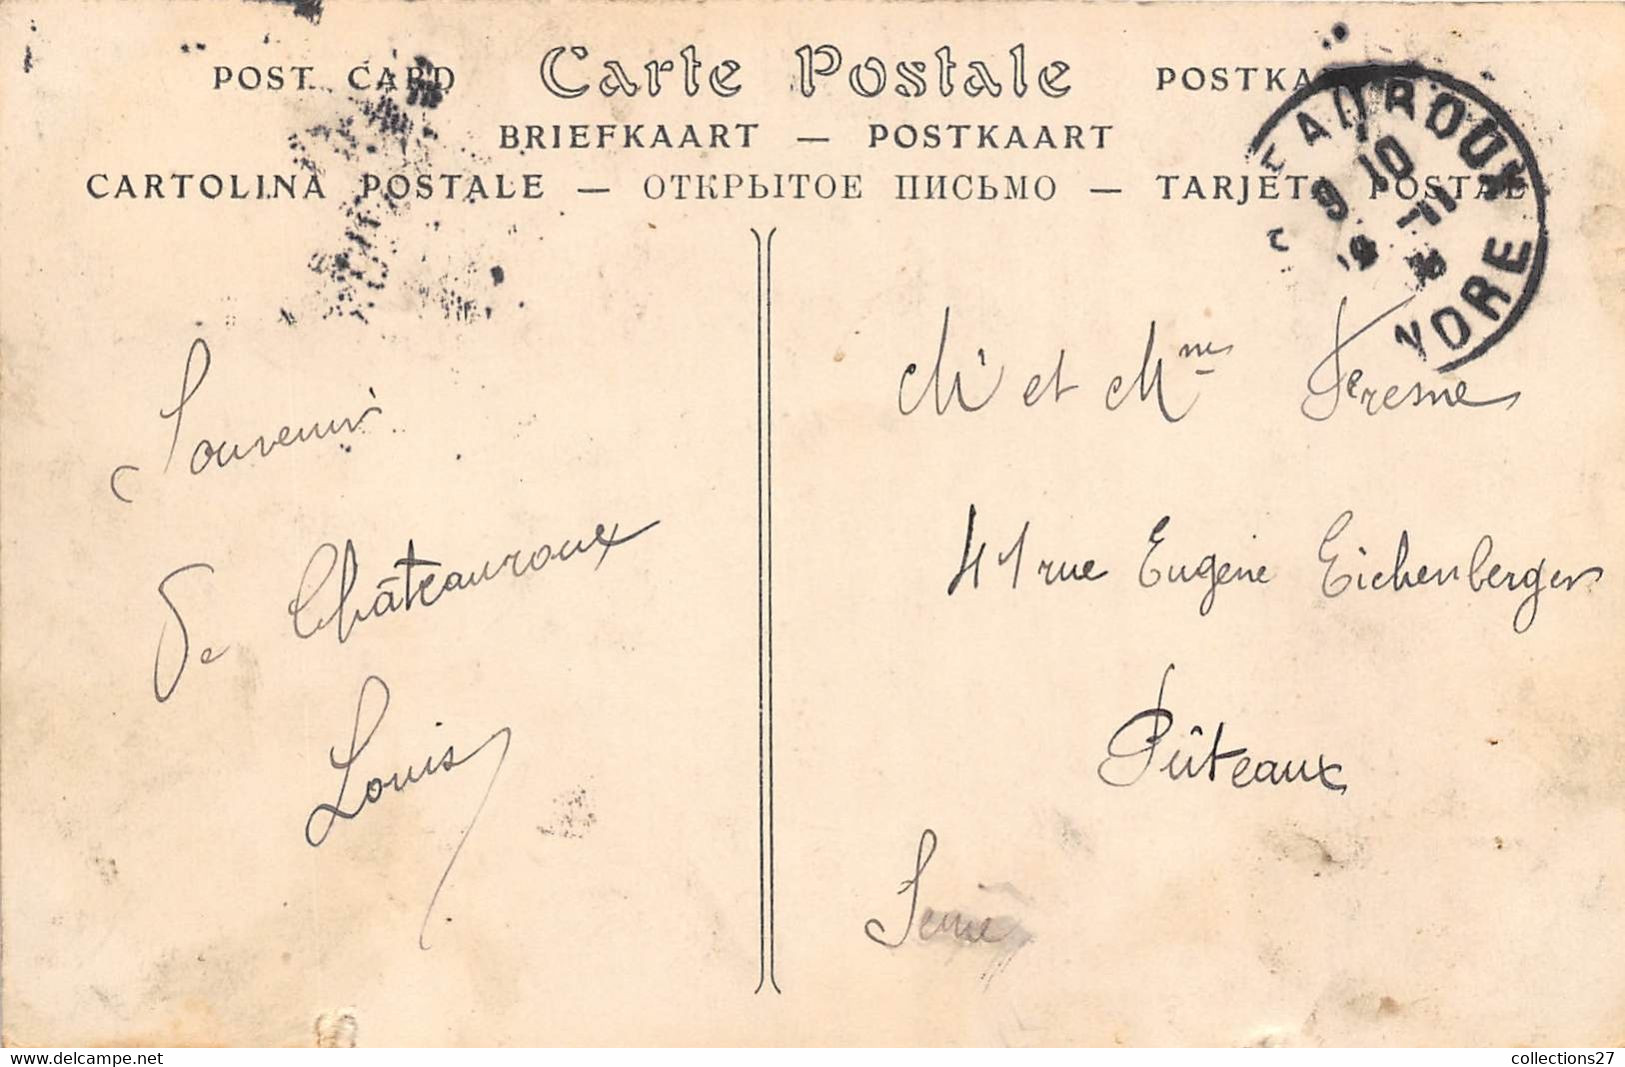 POST CARD Carte Postale POSTKA
BRIEFKAART — POSTKAART
CARTOLINA POSTALE — ОТКРЫТОЕ ПИСЬМО — TARJETA POSTAL
EAUROUX
9 10
-11
NDRE
Souvenir
de Châteauroux
Louis
Mr et Mme Feresne
41 rue Eugène Eichenberger
Pûteaux
Seine
collections27